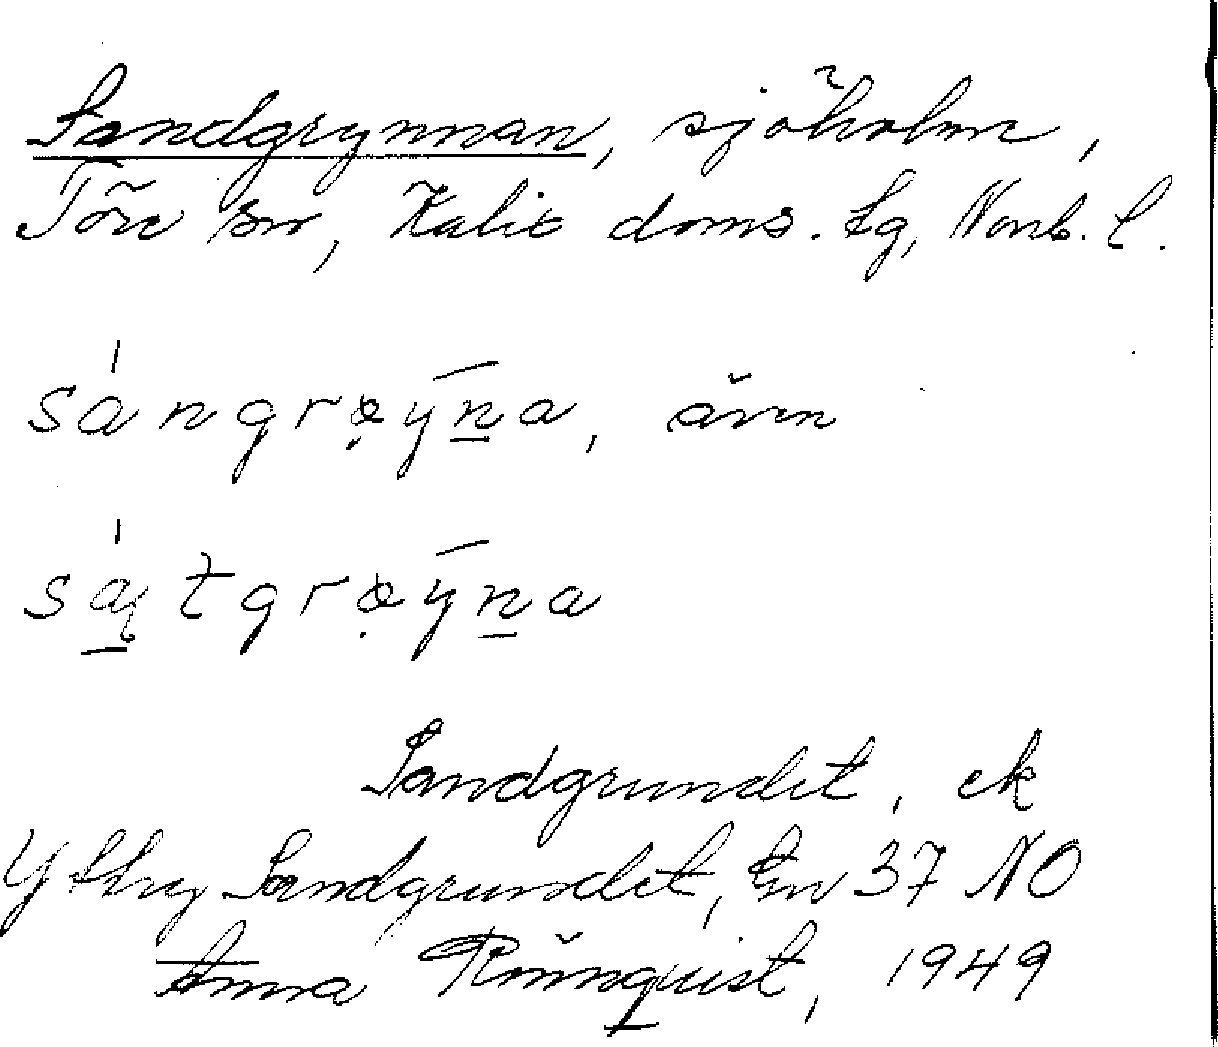 Sandgrynnan, sjöholm,
Töre sn, Kalix doms. lg, Norrb. l.
sángrøýna, även
sátgrøýna
Sandgrundet, ek
Yttre Sandgrundet, Gen 37 NO
Anna Rönnquist, 1949